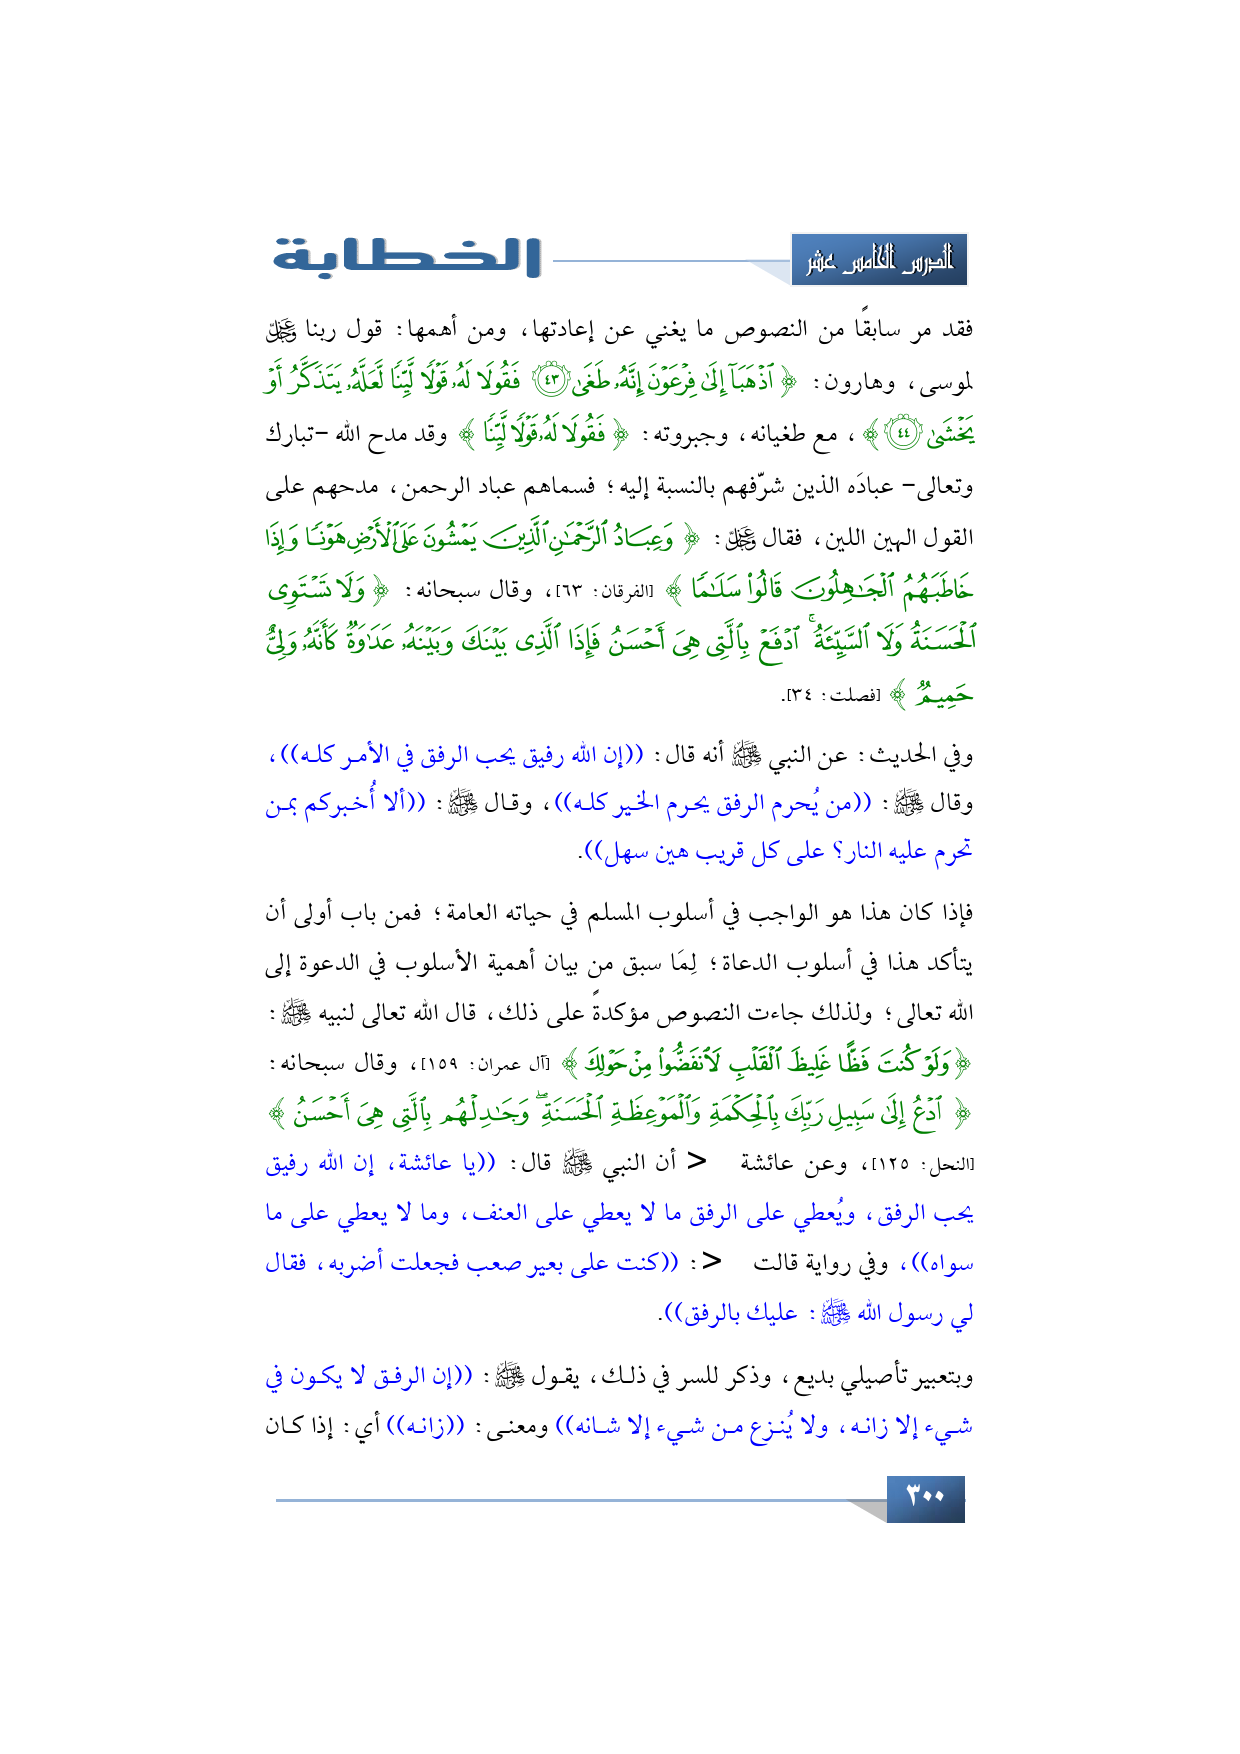 الدرس الخامس عشر
الخطابة
فقد مر سابقًا من النصوص ما يغني عن إعادتها، ومن أهمها: قول ربنا عز وجل
لموسى، وهارون: ﴿ ٱذْهَبَآ إِلَىٰ فِرْعَوْنَ إِنَّهُۥ طَغَىٰ ٤٣ فَقُولَا لَهُۥ قَوْلًا لَّيِّنًا لَّعَلَّهُۥ يَتَذَكَّرُ أَوْ
يَخْشَىٰ ٤٤ ﴾، مع طغيانه، وجبروته: ﴿ فَقُولَا لَهُۥ قَوْلًا لَّيِّنًا ﴾ وقد مدح الله -تبارك
وتعالى- عبادَه الذين شرّفهم بالنسبة إليه؛ فسماهم عباد الرحمن، مدحهم على
القول الهين اللين، فقال عز وجل: ﴿ وَعِبَادُ ٱلرَّحْمَٰنِ ٱلَّذِينَ يَمْشُونَ عَلَى ٱلْأَرْضِ هَوْنًا وَإِذَا
خَاطَبَهُمُ ٱلْجَٰهِلُونَ قَالُوا۟ سَلَٰمًا ﴾ [الفرقان: ٦٣]، وقال سبحانه: ﴿ وَلَا تَسْتَوِى
ٱلْحَسَنَةُ وَلَا ٱلسَّيِّئَةُ ۚ ٱدْفَعْ بِٱلَّتِى هِىَ أَحْسَنُ فَإِذَا ٱلَّذِى بَيْنَكَ وَبَيْنَهُۥ عَدَٰوَةٌ كَأَنَّهُۥ وَلِىٌّ
حَمِيمٌ ﴾ [فصلت: ٣٤].
وفي الحديث: عن النبي ﷺ أنه قال: ((إن الله رفيق يحب الرفق في الأمر كله))،
وقال ﷺ: ((من يُحرم الرفق يحرم الخير كله))، وقال ﷺ: ((ألا أُخبركم بمن
تحرم عليه النار؟ على كل قريب هين سهل)).
فإذا كان هذا هو الواجب في أسلوب المسلم في حياته العامة؛ فمن باب أولى أن
يتأكد هذا في أسلوب الدعاة؛ لِمَا سبق من بيان أهمية الأسلوب في الدعوة إلى
الله تعالى؛ ولذلك جاءت النصوص مؤكدةً على ذلك، قال الله تعالى لنبيه ﷺ:
﴿ وَلَوْ كُنتَ فَظًّا غَلِيظَ ٱلْقَلْبِ لَٱنفَضُّوا۟ مِنْ حَوْلِكَ ﴾ [آل عمران: ١٥٩]، وقال سبحانه:
﴿ ٱدْعُ إِلَىٰ سَبِيلِ رَبِّكَ بِٱلْحِكْمَةِ وَٱلْمَوْعِظَةِ ٱلْحَسَنَةِ ۖ وَجَٰدِلْهُم بِٱلَّتِى هِىَ أَحْسَنُ ﴾
[النحل: ١٢٥]، وعن عائشة < أن النبي ﷺ قال: ((يا عائشة، إن الله رفيق
يحب الرفق، ويُعطي على الرفق ما لا يعطي على العنف، وما لا يعطي على ما
سواه))، وفي رواية قالت <: ((كنت على بعير صعب فجعلت أضربه، فقال
لي رسول الله ﷺ: عليك بالرفق)).
وبتعبير تأصيلي بديع، وذكر للسر في ذلك، يقول ﷺ: ((إن الرفق لا يكون في
شيء إلا زانه، ولا يُنزع من شيء إلا شانه)) ومعنى: ((زانه)) أي: إذا كان
٣٠٠